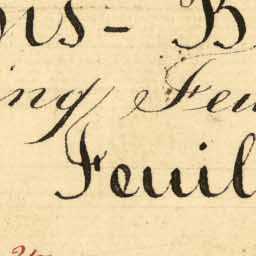 ns - B
ing Feu
Feuil